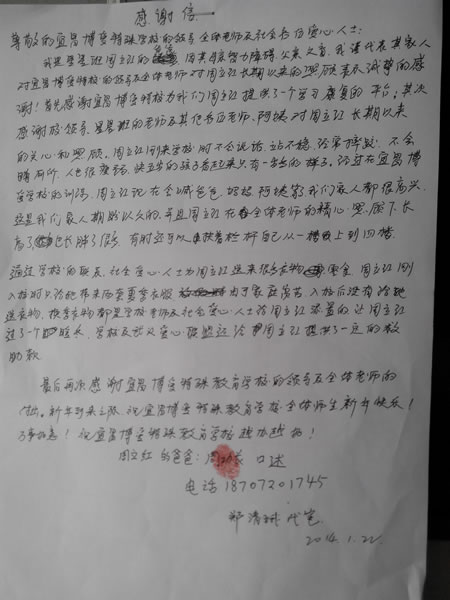 感谢信
尊敬的宜昌博爱特殊学校的领导全体老师及社会各位爱心人士:
我是星星班周立红的 因其母亲智力障碍 父亲文盲,我请代表其家人
对宜昌博爱特校的领导及全体老师对周立红长期以来的照顾表示诚挚的感
谢!首先感谢宜昌博爱特校为我们周立红提供了一个学习康复的平台;其次
感谢校领导,星星班的老师及其他各位老师、阿姨对周立红长期以来
的关心和照顾。周立红刚来学校时不会说话、站不稳、经常摔跤,不会
蹲厕所,人也很瘦弱,快五岁的孩子看起来只有一岁多的样子。经过在宜昌博
爱学校的训练,周立红现在会喊爸爸、妈妈、阿姨等,我们家人都很高兴,
这是我们家人期盼以久的,并且周立红在全体老师的精心照顾下,长
高了也长胖了很多,有时还可以扶着栏杆自己从一楼爬上到四楼.
通过学校的联系,社会爱心人士为周立红送来很多衣物 零食,周立红刚
入校时只给她带来两套夏季衣服 由于家庭贫苦,入校后没有给她
送衣物,换季衣物都是学校老师及社会爱心人士给周立红添置的,让周立红
过了个暖冬,学校及武汉爱心联盟还给周立红提供了一定的救
助款.
最后再次感谢宜昌博爱特殊教育学校的领导及全体老师的
付出。新年到来之际,祝宜昌博爱特殊教育学校全体师生新年快乐!
万事如意!祝宜昌博爱特殊教育学校越办越好!
周立红的爸爸:周 口述
电话 18707201745
郑清 代笔
2014.1.22